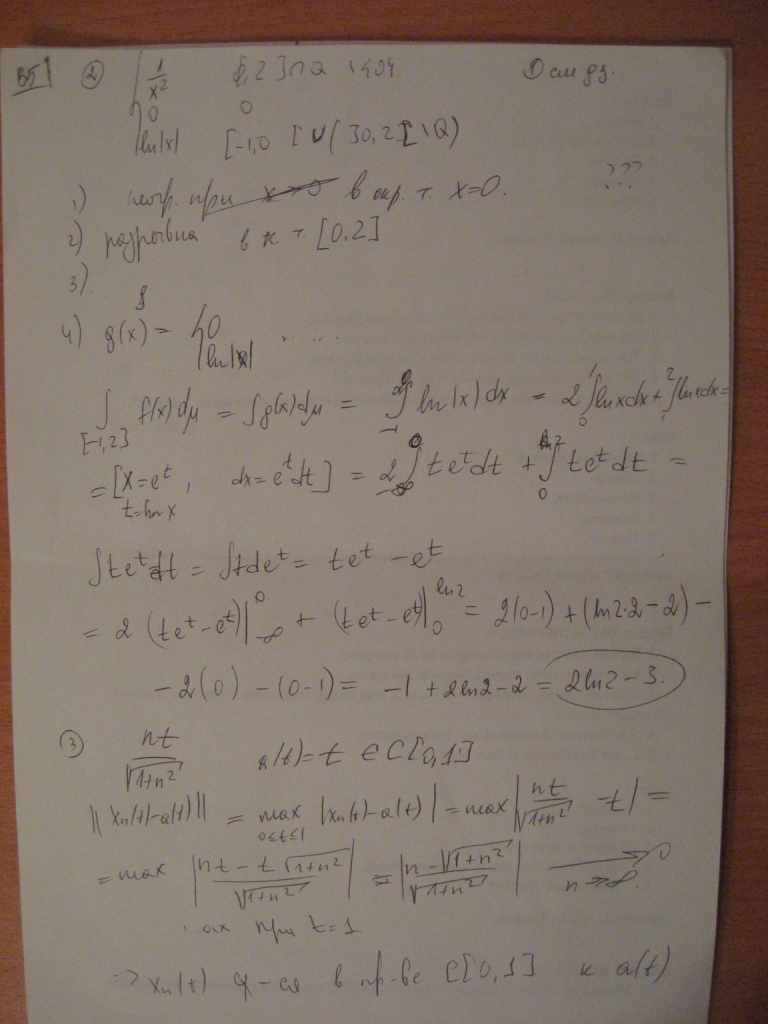 В5 ② 1/x² [1,2]∩Q \{0}
0 0
ln|x| [-1,0[ ∪ (]0,2] \Q)
1) неогр. при x→0 в окр. т. x=0. ???
2) разрывна в к. т. [0,2]
3).
4) g(x) = {0 .....
ln|x|
∫ f(x)dμ = ∫g(x)dμ = ∫ ln|x|dx = 2∫₀¹ lnxdx + ∫₁² lnxdx =
[-1,2]
= [x=e^t, dx=e^t dt] = 2∫_{-∞}^0 te^t dt + ∫_0^{ln2} te^t dt =
t=ln x
∫te^t dt = ∫tde^t = te^t - e^t
= 2 (te^t - e^t)|_{-∞}^0 + (te^t - e^t)|_0^{ln2} = 2(0-1) + (ln2·2-2) -
-2(0) - (0-1) = -1 + 2ln2 - 2 = 2ln2 - 3.
③ nt/√(1+n²) a(t)=t ∈ C[0,1]
||xn(t)-a(t)|| = max_{0≤t≤1} |xn(t)-a(t)| = max |nt/√(1+n²) - t| =
= max |(nt - t√(1+n²))/√(1+n²)| = |(n - √(1+n²))/√(1+n²)| → 0 n→∞.
max при t=1.
→ xn(t) сх-ся в пр-ве C[0,1] к a(t)